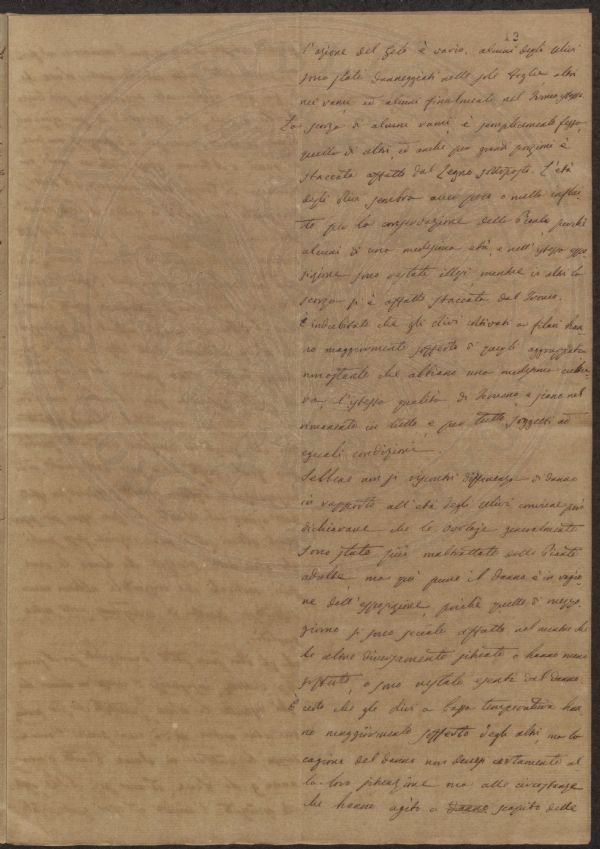 13
l'azione del gelo è varia. alcuni degli ulivi
sono stati danneggiati nelle sole foglie altri
nei rami ed alcuni finalmente nel tronco stesso.
La scorza di alcuni rami è semplicemente fessa,
quella di altri, ed anche per grandi porzioni è
staccata affatto dal Legno sottoposto. L'età
degli ulivi sembra aver poca o nulla influi-
to per la conservazione delle Piante perchè
alcuni di una medesima età, e nell'istessa espo-
sizione sono restati illesi mentre in altri la
scorza si è affatto staccata dal Tronco.
È indubitato che gli ulivi coltivati a filari han-
no maggiormente sofferto di quegli aggruppati
nonostante che abbiano una medesima cultu-
ra, l'istessa qualità di Terreno e siano nel
rimanente in tutto e per tutto soggetti ad
eguali condizioni.
Sebbene non si riscontri differenza di danno
in rapporto all'età degli ulivi conviene però
dichiarare che le
generalmente
sono state più maltrattate delle Piante
adulte ma qui pure il danno è in ragio-
ne dell'esposizione, poichè quelle di mezzo-
giorno si sono seccate affatto nel mentre che
le altre diversamente situate o hanno meno
sofferto, o sono restate esenti dal danno.
È certo che gli ulivi a bassa temperatura han-
no maggiormente sofferto degli altri, ma la
cagione del danno non devesi certamente al-
la loro situazione ma alle circostanze
che hanno agito a danno scapito delle